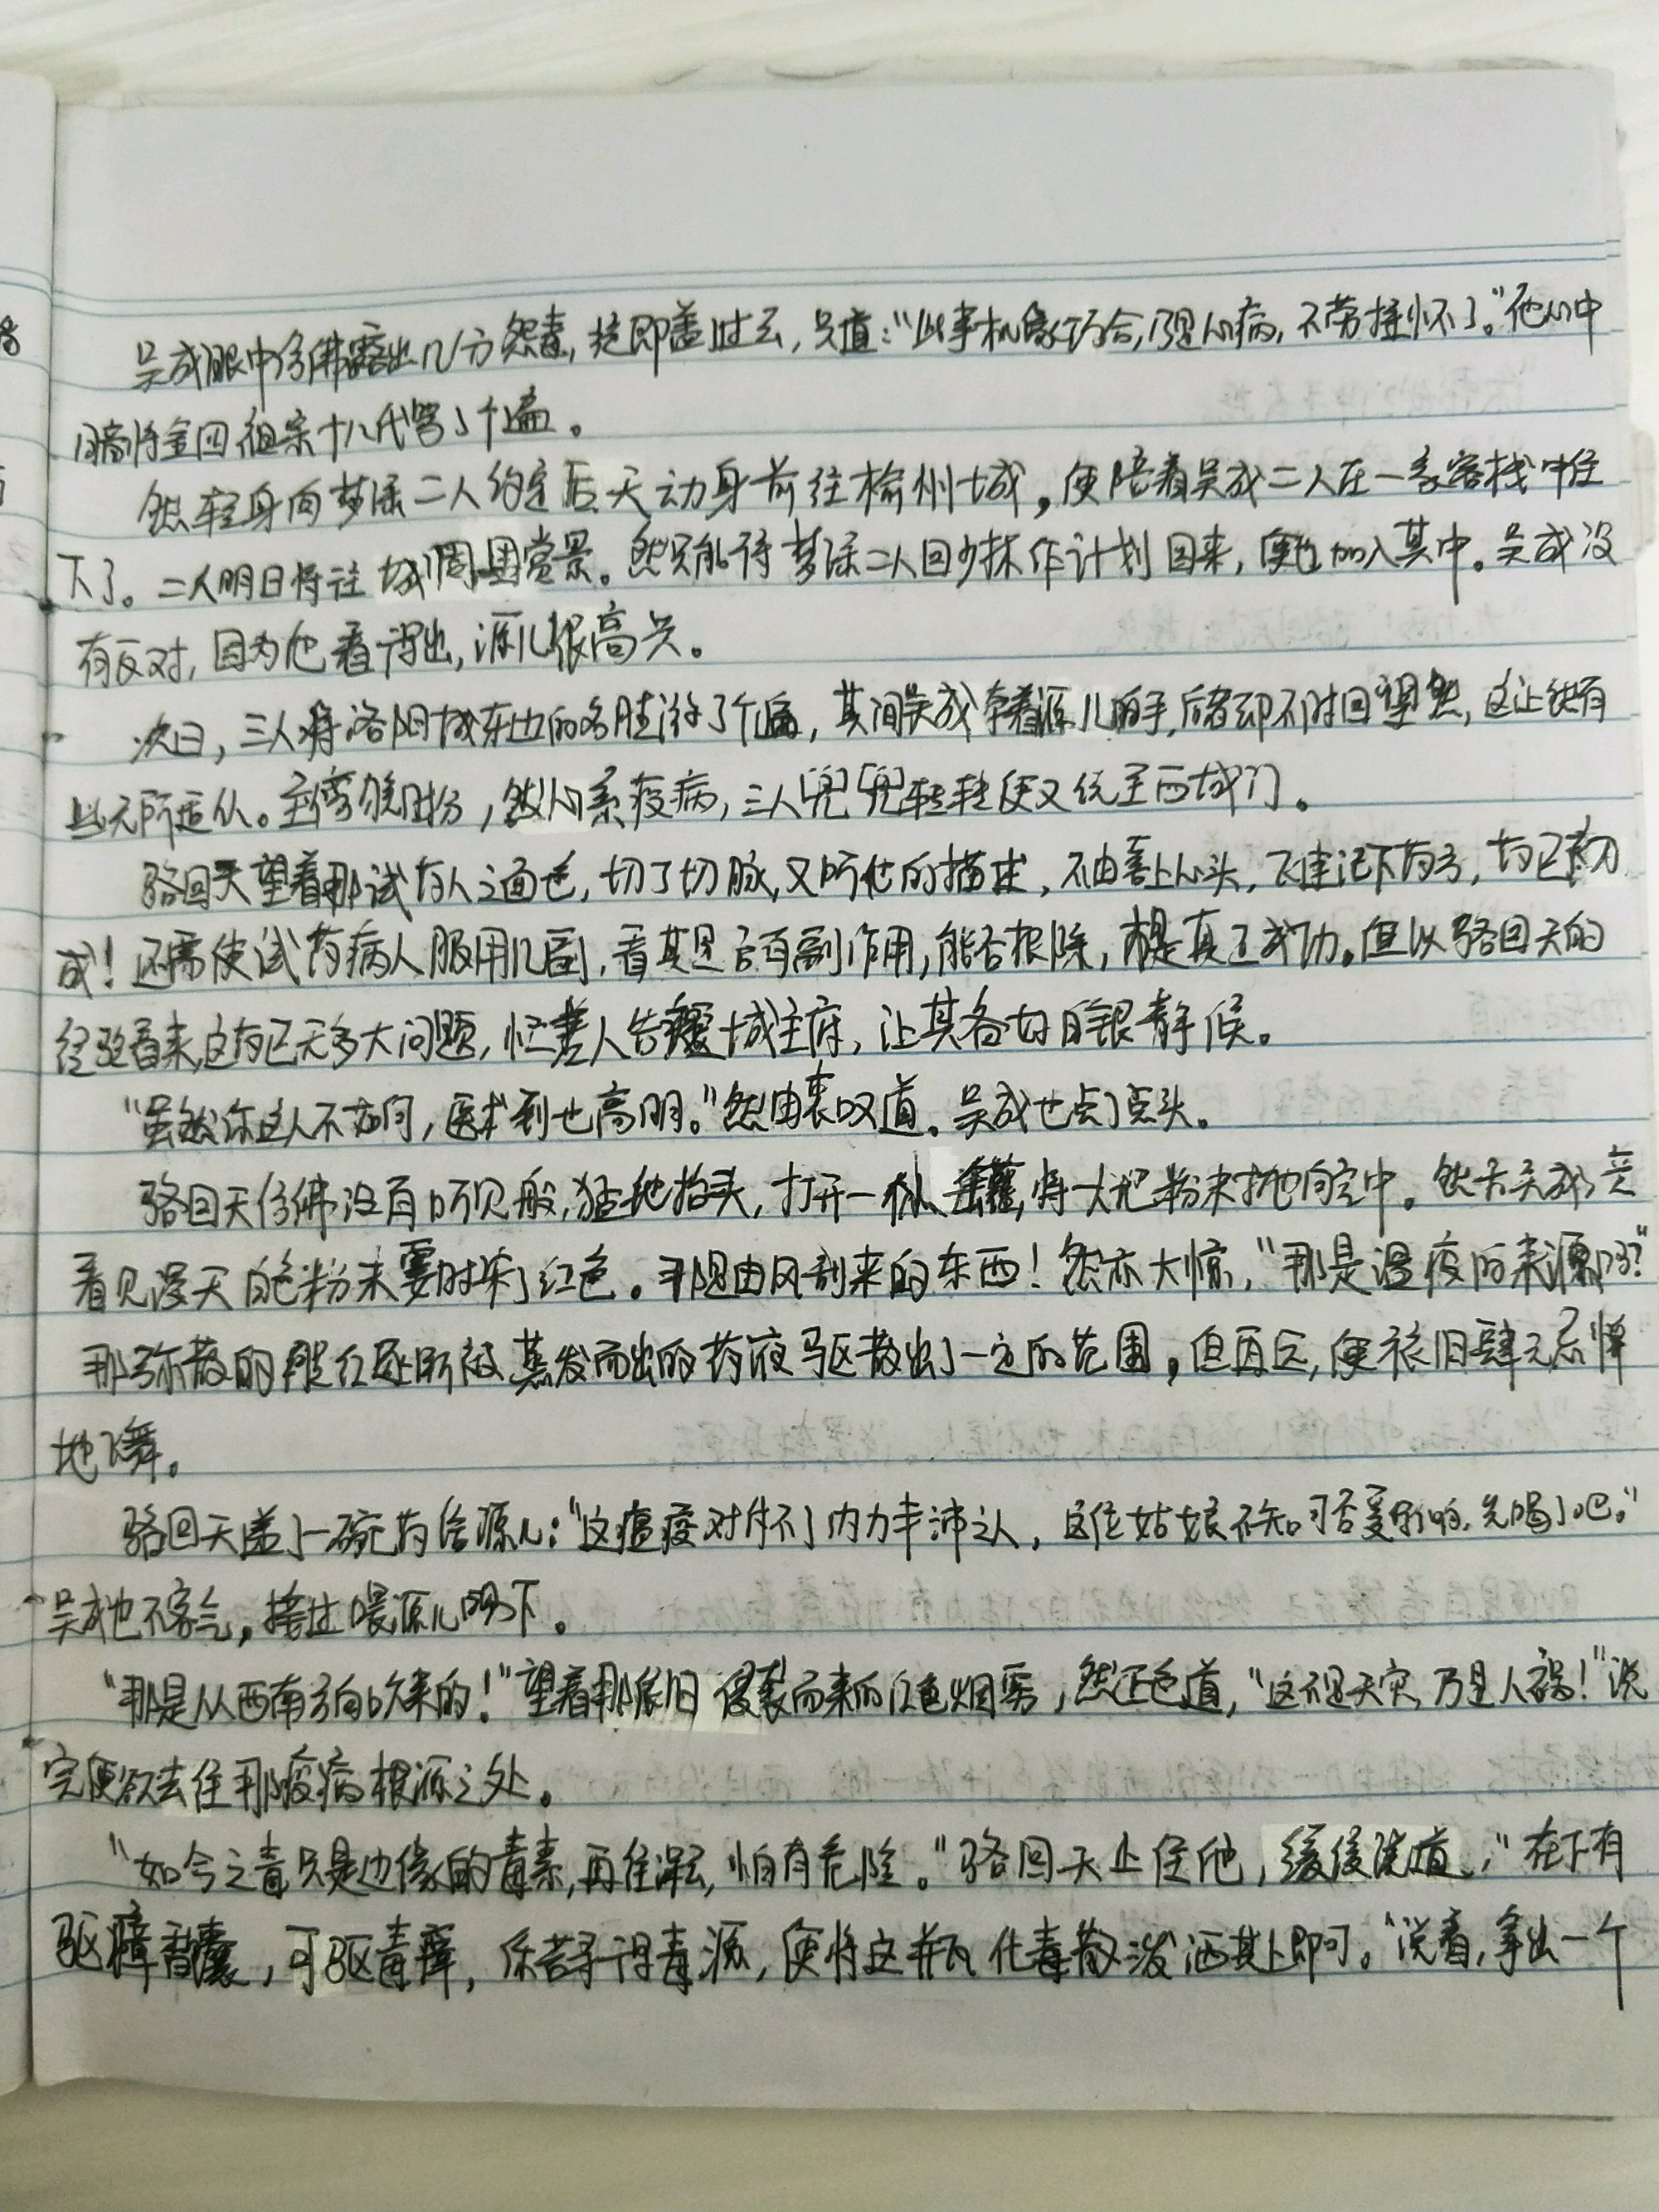 吴成眼中仿佛露出几分怨毒,旋即盖过去,只道:“此事机缘巧合,乃是心病,不劳挂怀了。”他心中
暗将金四祖宗十八代骂了个遍。
然轻身向梦际二人约定后天动身前往榆州城,便陪着吴成二人在一家客栈中住
下了。二人明日将往城周围赏景。然只能待梦际二人回少林作计划回来,便也加入其中。吴成没
有反对,因为他看得出,源儿很高兴。
次日,三人将洛阳城东边的名胜游了个遍,其间吴成牵着源儿的手,后者却不时回望然,这让然有
些无所适从。至傍晚时分,然心系疫病,三人兜兜转转便又绕至西城门。
骆回天望着那试药人之面色,切了切脉,又听他的描述,不由喜上心头,飞速记下药方,药已初
成!还需使试药病人服用几副,看其是否有副作用,能否根除,才是真正成功。但以骆回天的
经验看来,这药已无多大问题,忙差人告禀城主府,让其备好白银静候。
“虽然你这人不如何,医术到也高明。”然由衷叹道。吴成也点了点头。
骆回天仿佛没有听见般,猛地抬头,打开一罐,将一大把粉末抛向空中。然与吴成竟
看见漫天白色粉末霎时染了红色。那是由风刮来的东西!然亦大惊,“那是瘟疫的来源吗?”
那弥散的猩红处所被蒸发而出的药液驱散出了一定的范围,但再远,便依旧肆无忌惮
地飞舞。
骆回天盖了一碗药给源儿:“这瘟疫对付不了内力丰沛之人,这位姑娘不知可否受影响,先喝了吧。”
吴成也不客气,接过喂源儿喝下。
“那是从西南方向吹来的!”望着那依旧侵袭而来的红色烟雾,然正色道,“这不是天灾,乃是人祸!”说
完便欲去往那疫病根源之处。
“如今之毒只是边缘的毒素,再往深去,怕有危险。”骆回天止住他,缓缓说道,“在下有
驱瘴香囊,可驱毒瘴,你若寻得毒源,便将这瓶化毒散泼洒其上即可。”说着,拿出一个